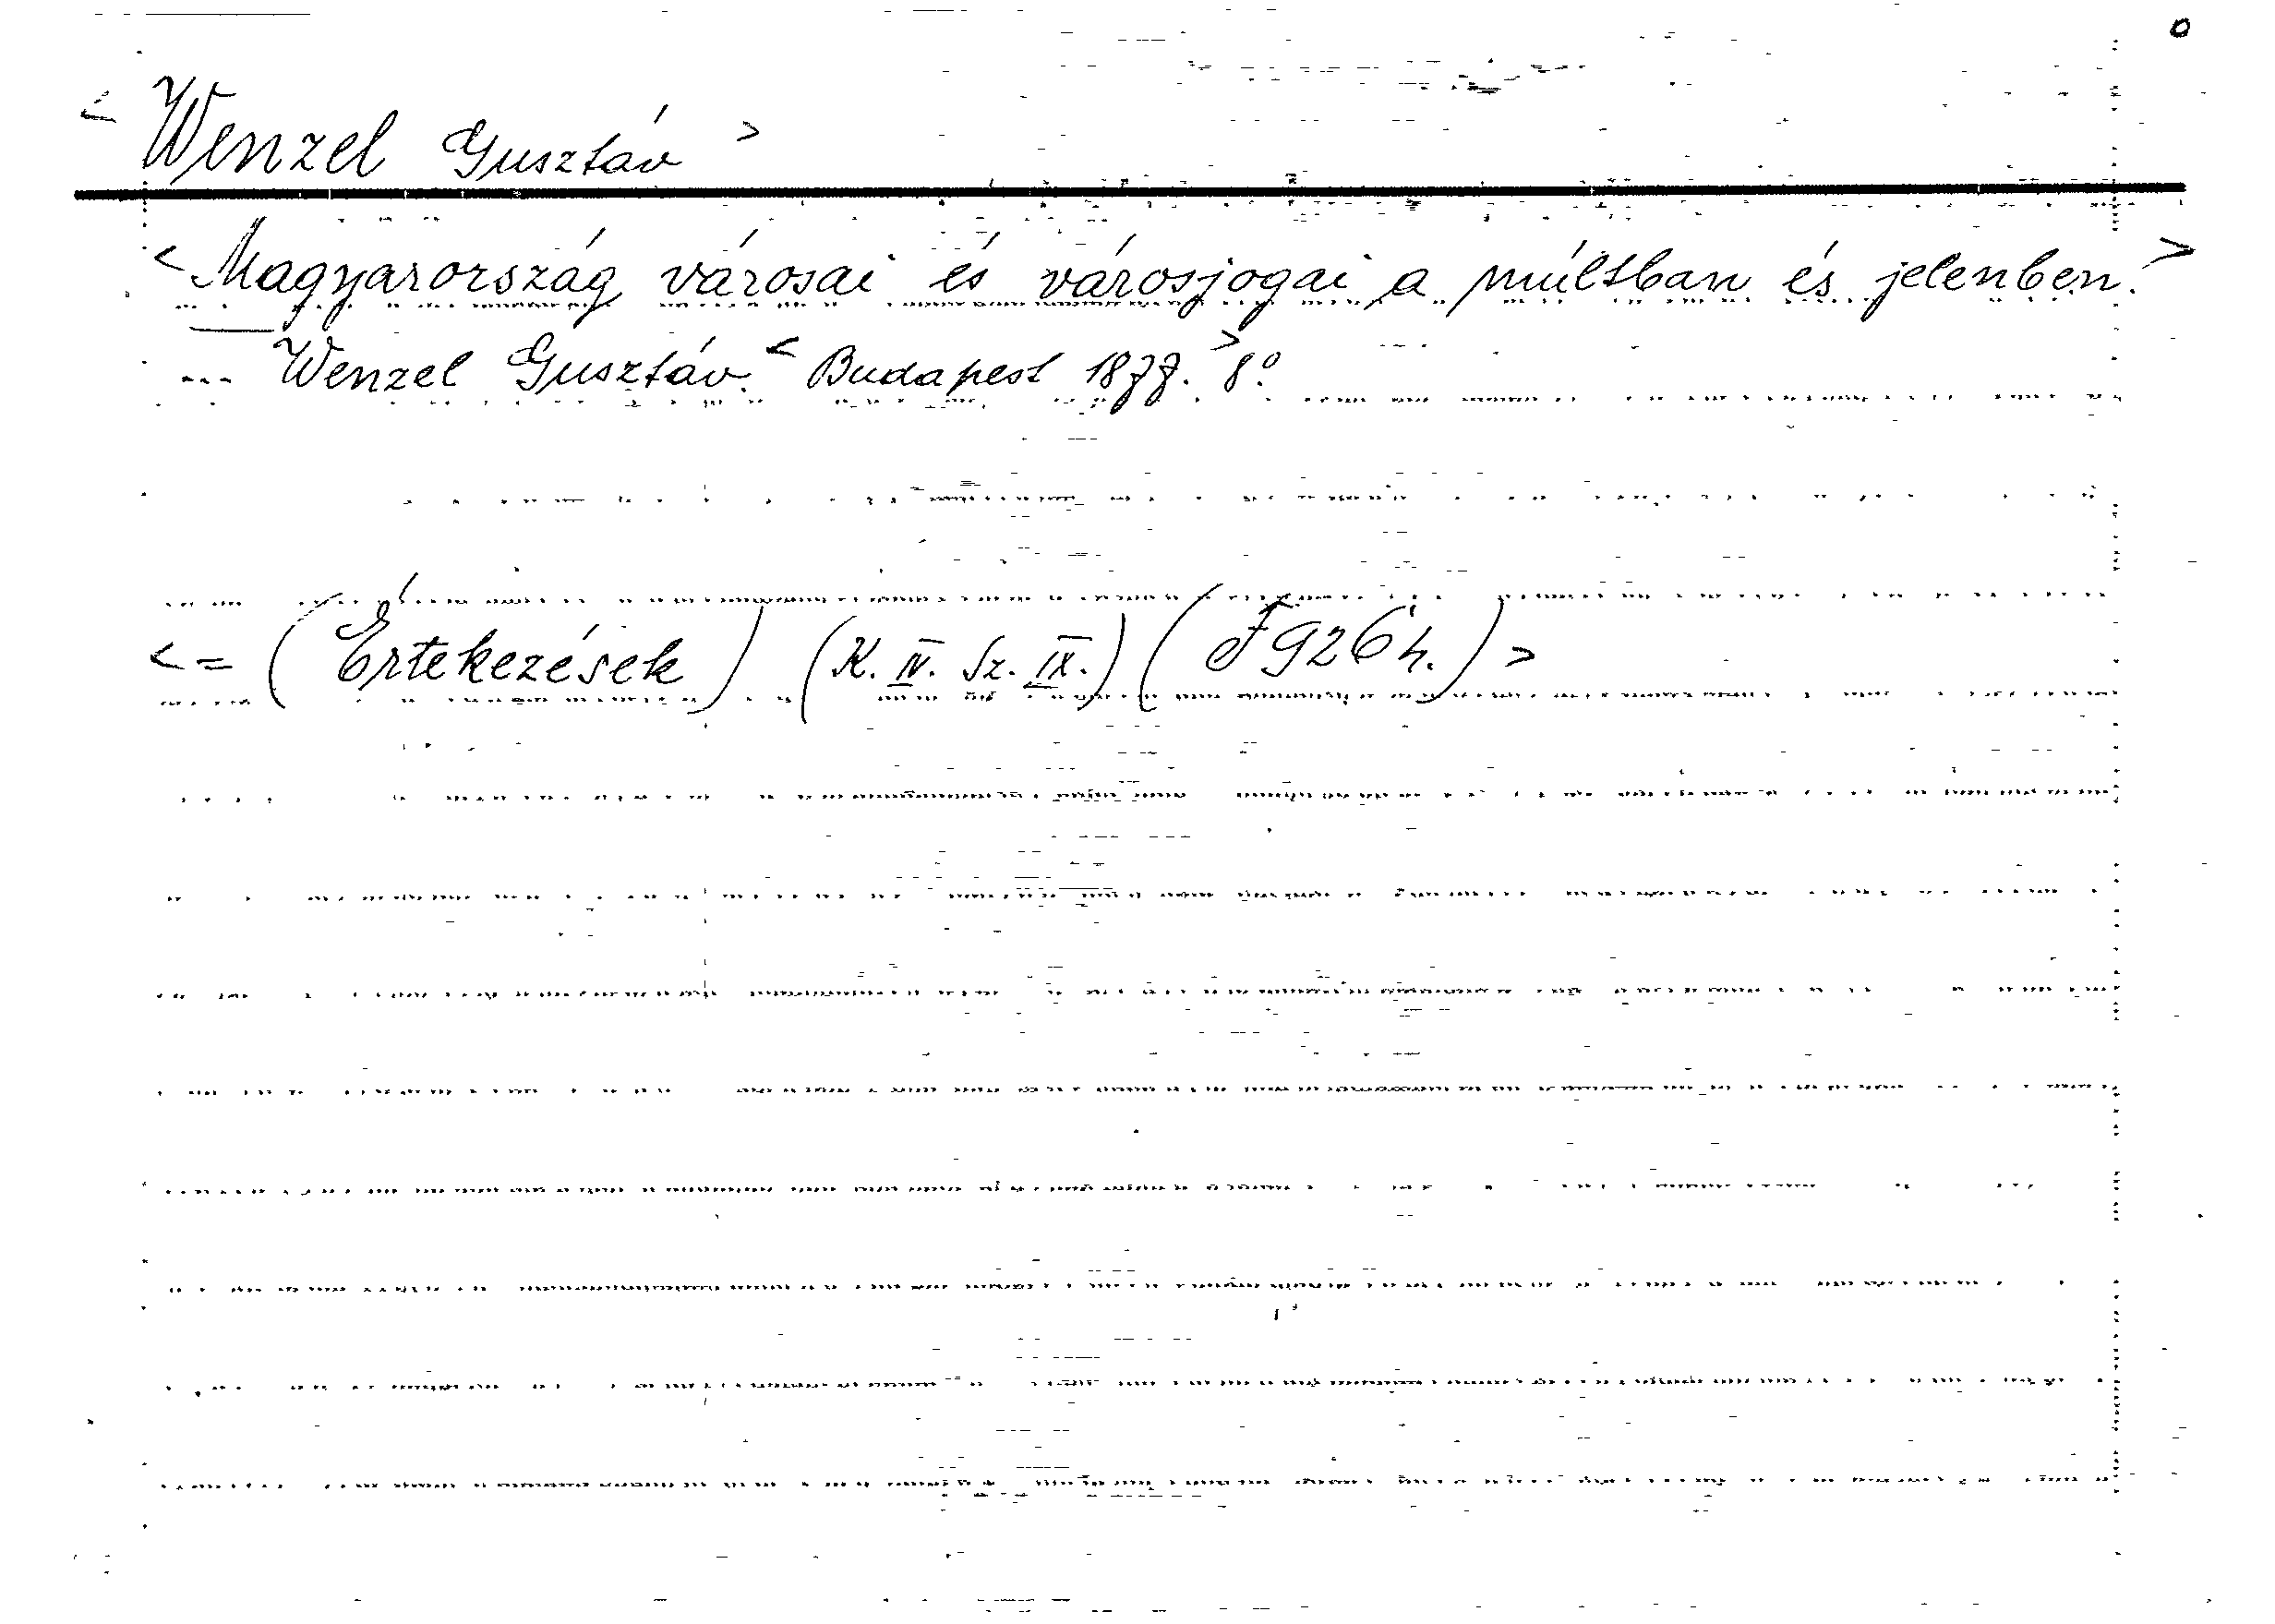 < Wenzel Gusztáv >
< Magyarország városai és városjogai a múltban és jelenben. >
--- Wenzel Gusztáv. < Budapest 1877. > 8°.
< = (Értekezések) (K. IV. Sz. IX.) (F 926 h.) >